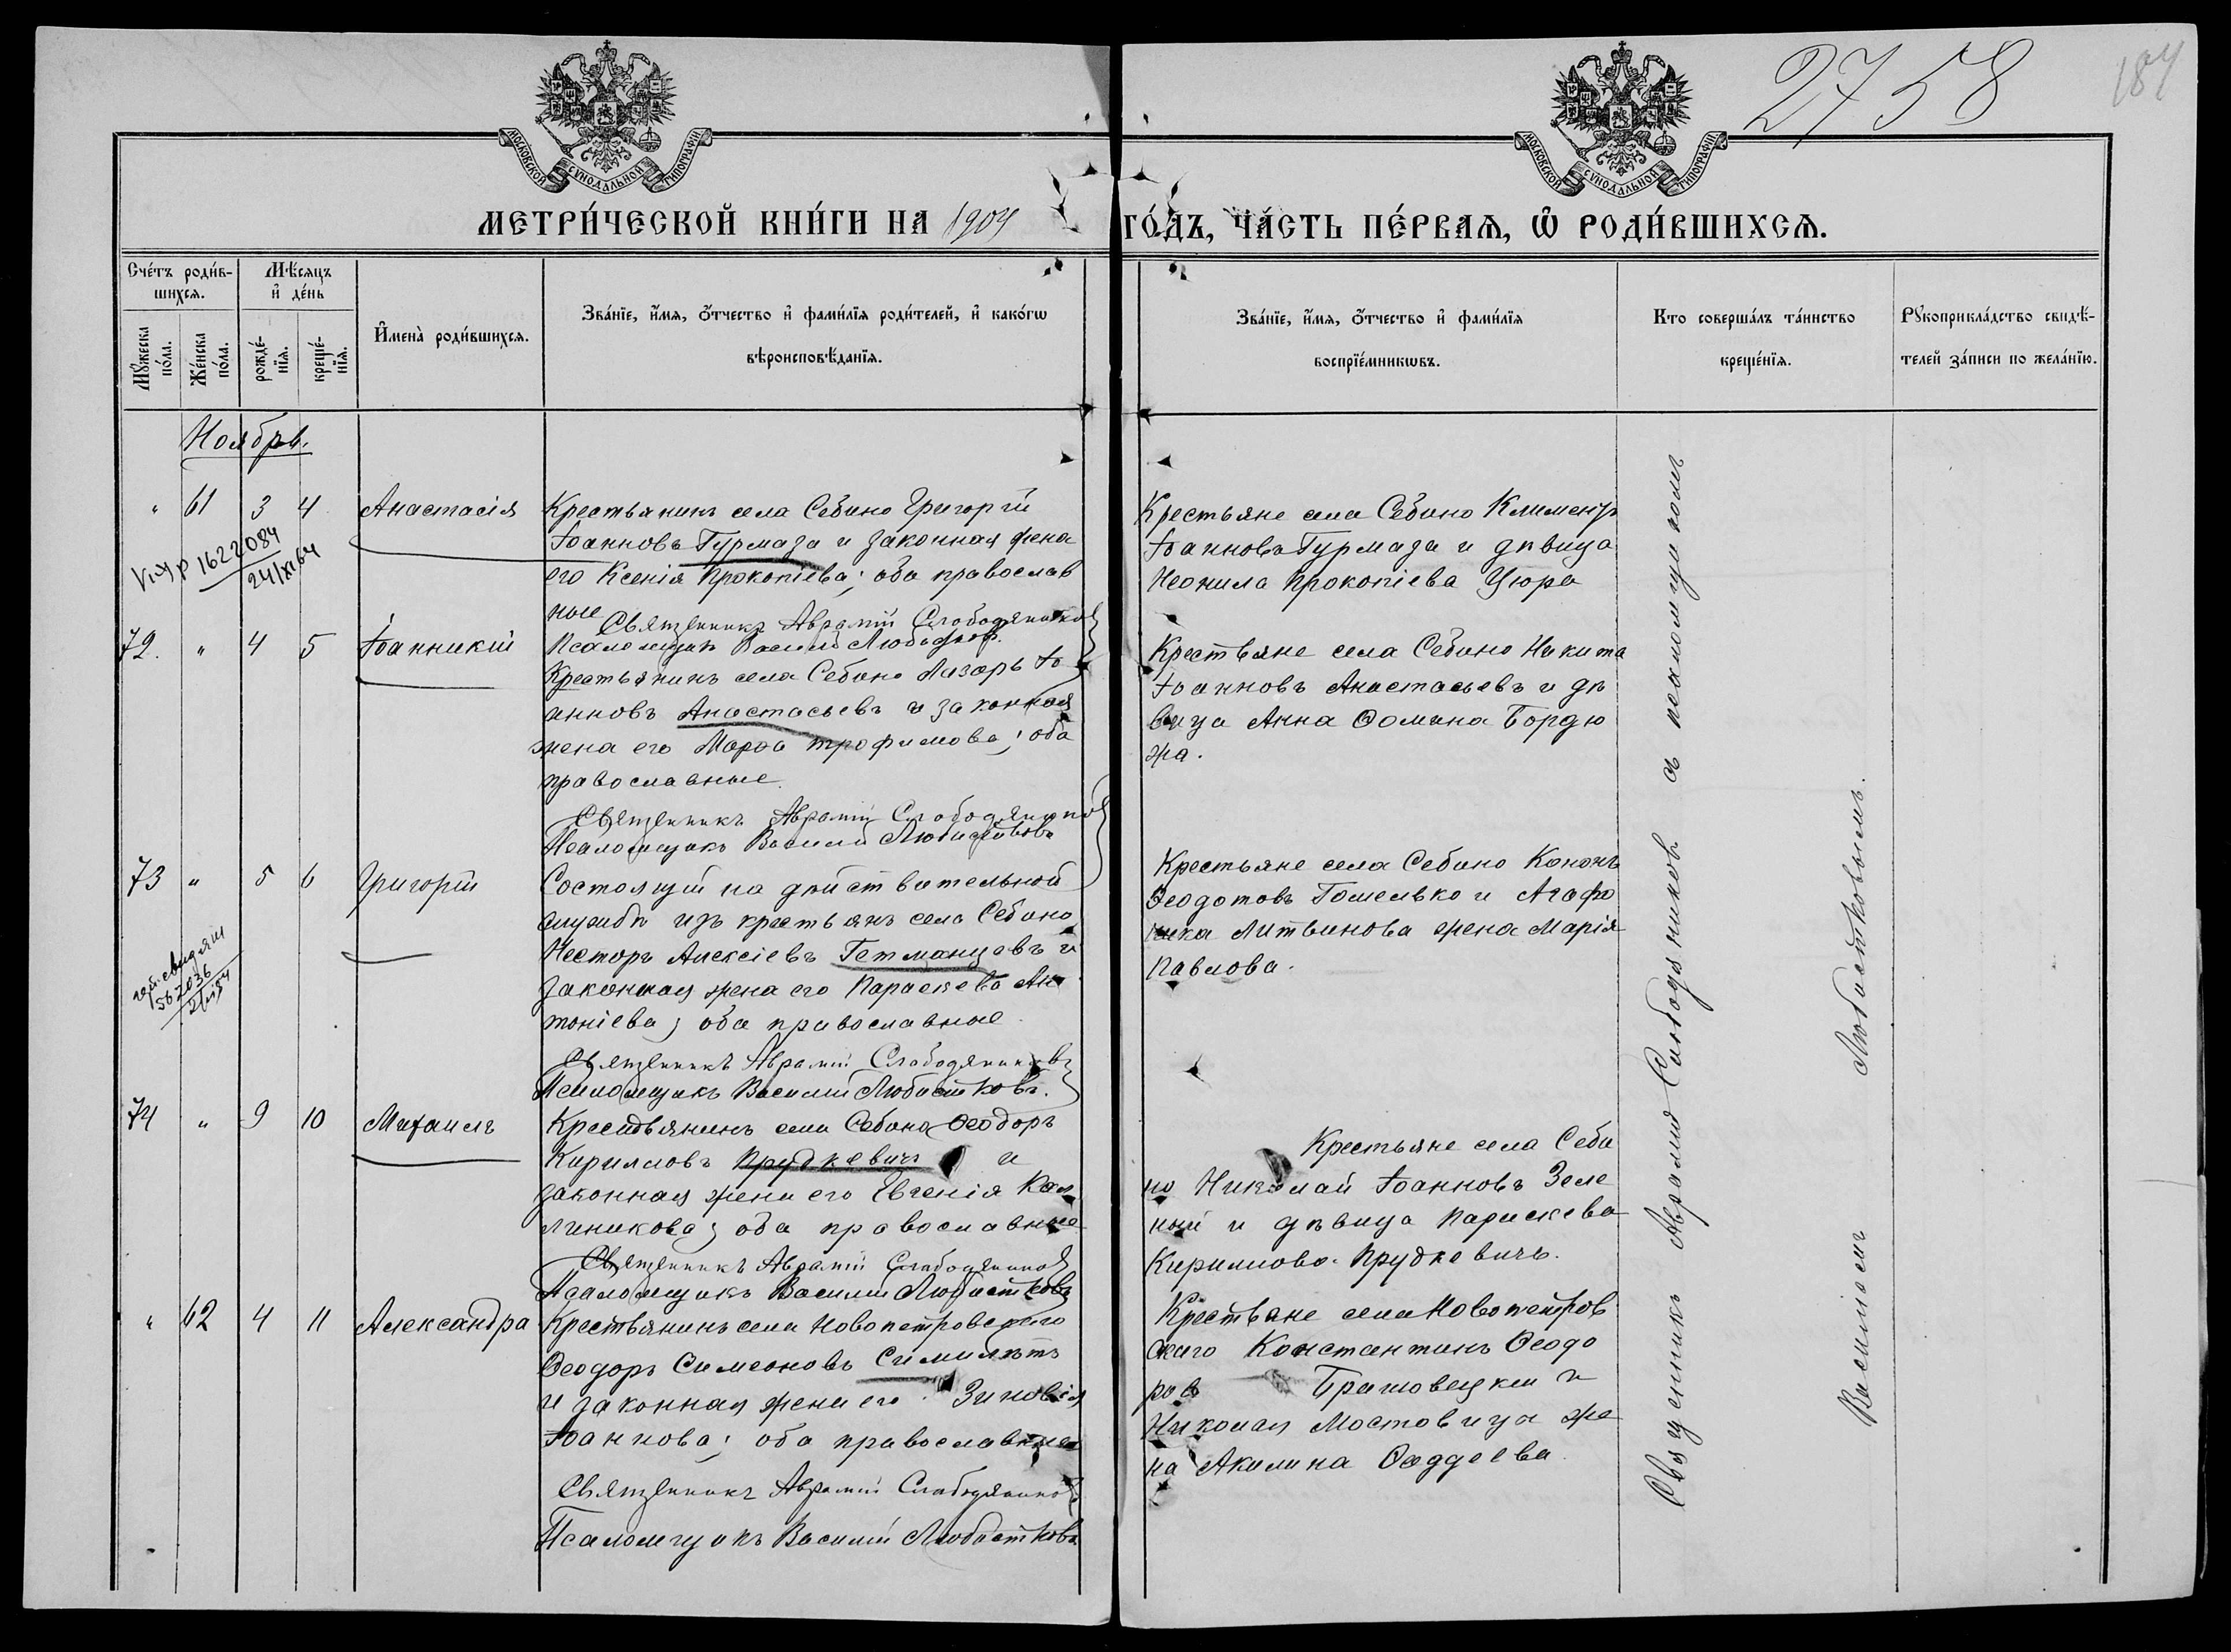 2758
184
МОСКОВСКОЙ СѴНОДАЛЬНОЙ ТИПОГРАФІИ
МОСКОВСКОЙ СѴНОДАЛЬНОЙ ТИПОГРАФІИ
МЕТРИ́ЧЕСКОЙ КНИ́ГИ НА 1904 ГО́ДЪ, ЧА́СТЬ ПЕ́РВАѦ, Ѡ҆ РОДИ́ВШИХСѦ.
Сче́тъ роди́в-
шихсѧ.
Мꙋ́жеска по́ла.
Же́нска по́ла.
Мѣ́сѧцъ
и҆ де́нь
рожде́-
нїѧ.
креще́-
нїѧ.
И҆мена̀ роди́вшихсѧ.
Зва́нїе, и҆́мѧ, ѻ҆́тчество и҆ фами́лїѧ роди́телей, и҆ како́гѡ
вѣроисповѣ́данїѧ.
Зва́нїе, и҆́мѧ, ѻ҆́тчество и҆ фами́лїѧ
воспрїе́мникѡвъ.
Кто соверша́лъ та́инство
креще́нїѧ.
Рꙋкоприкла́дство свидѣ́-
телей за́писи по жела́нїю.
Ноябрь.
" 61 3 4 Анастасія
Крестьянинъ села Себино Григорій
Іоанновъ Гурмаза и законная жена
его Ксенія Прокопіева; оба православ
ные
Священникъ Аврамій Слободяников
Псаломщикъ Василій
Крестьяне села Себино Климентъ
Іоанновъ Гурмаза и дѣвица
Неонила Прокопіева Цюра
1622084
24/XI64
72. " 4 5 Іоанникій
Крестьянинъ села Себино Лазарь Іо
анновъ Анастасьевъ и законная
жена его Марѳа Трофимова; оба
православные.
Священникъ Аврамій Слободяников
Псаломщикъ Василій Любистковъ
Крестьяне села Себино Никита
Іоанновъ Анастасьевъ и дѣ
вица Анна Ѳомина Бордю
жа.
73 " 5 6 Григорій
Состоящій на дѣйствительной
службѣ изъ крестьянъ села Себино
Несторъ Алексіевъ Гетманцевъ и
законная жена его Параскева Ан
тоніева; оба православные
Священникъ Аврамій Слободяниковъ
Псаломщикъ Василій Любистковъ.
Крестьяне села Себино Кононъ
Ѳеодотовъ Гомелько и Агафо
ника Литвинова жена Марія
Павлова.
567036
74 " 9 10 Михаилъ
Крестьянинъ села Себино Ѳеодоръ
Кирилловъ Прудкевичъ и
законная жена его Евгенія Кал
линикова; оба православные
Священникъ Аврамій Слободяников
Псаломщикъ Василій Любистковъ
Крестьяне села Себи
но Николай Іоанновъ Зеле
ный и дѣвица Параскева
Кириллова Прудкевичъ.
" 62 4 11 Александра
Крестьянинъ села Новопетровскаго
Ѳеодоръ Симеоновъ
и законная жена его Зиновія
Іоаннова; оба православные
Священникъ Аврамій Слободяников
Псаломщикъ Василій Любистковъ
Крестьяне села Новопетров
скаго Константинъ Ѳеодо
ровъ и
Николая Мостовица же
на Акилина Ѳаддеева.
Священникъ Аврамій Слободяниковъ съ псаломщикомъ
Василіемъ Любистковымъ.